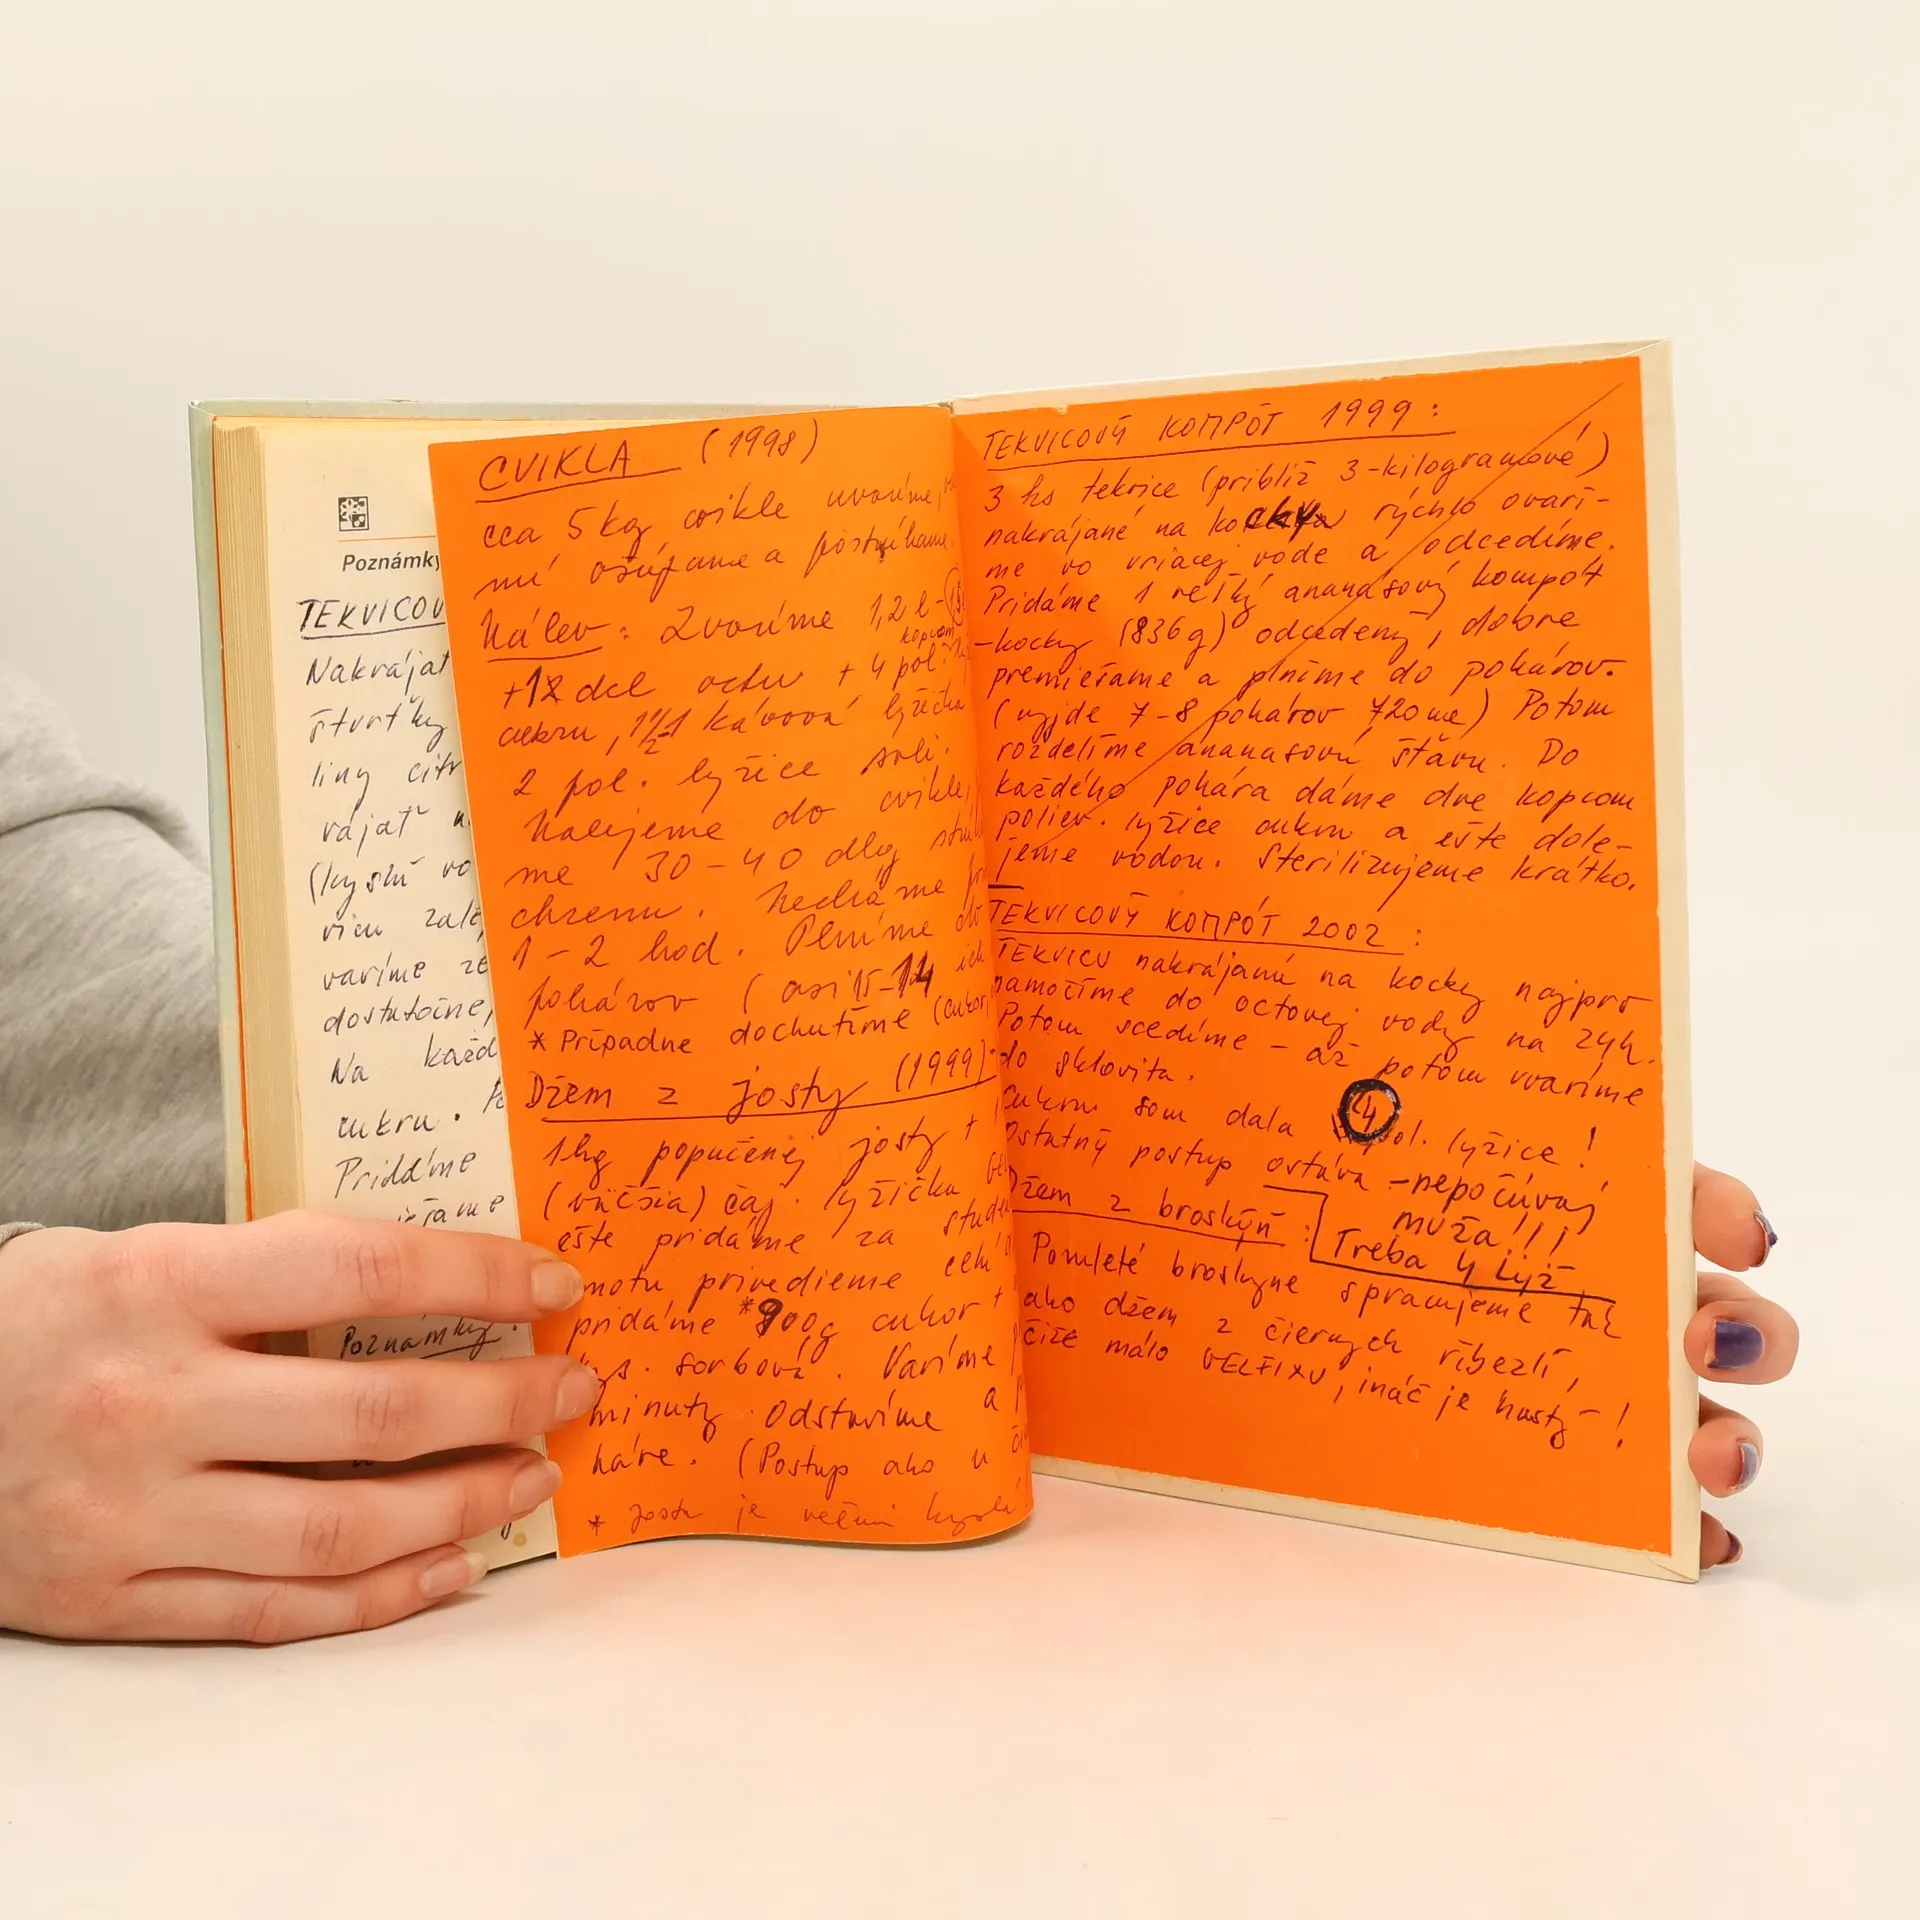 Poznámky
TEKVICOV
Nakrájať
štvrťky
liny citr
vajať
(kyslú vo
vicu zale
varíme
dostatočne,
Na každ
cukru.
Pridáme
Poznámky:
CVIKLA (1998)
cca 5 kg cvikle uvaríme,
ošúpame a postrúhame.
Nálev: Zvaríme 1,2 l - 1,5
kopcom
+ 12 dcl octu + 4 pol.
cukru, 1 1/2 - 1 kávová lyžička
2 pol. lyžice soli.
Nalejeme do cvikle,
me 30 - 40 dkg
chrenu. Necháme
1 - 2 hod. Plníme do
pohárov (asi 15-14 ich
* Prípadne dochutíme (cukor,
Džem z josty (1999)
1kg popučenej josty +
(väčšia) čaj. lyžička
ešte pridáme za stude
motu privedieme
pridáme *900g cukor +
kys. sorbová. Varíme
minúty. Odstavíme a
háre. (Postup ako u
* Josta je veľmi kyslá
TEKVICOVÝ KOMPÓT 1999:
3 ks tekvice (približ 3-kilogramové)
nakrájané na kocky rýchlo ovarí-
me vo vriacej vode a odcedíme.
Pridáme 1 veľký ananásový kompót
-kocky (836g) odcedený, dobre
premiešame a plníme do pohárov.
(vyjde 7-8 pohárov 720 ml) Potom
rozdelíme ananasovú šťavu. Do
každého pohára dáme dve kopcom
poliev. lyžice cukru a ešte dole-
jeme vodou. Sterilizujeme krátko.
TEKVICOVÝ KOMPÓT 2002:
TEKVICU nakrájanú na kocky najprv
namočíme do octovej vody na 24h.
Potom scedíme - až potom uvaríme
do sklovita.
Cukru som dala 4 pol. lyžice!
Ostatný postup ostáva - nepočúvaj
muža!!!
Treba 4 lyž
Džem z broskýň:
Pomleté broskyne spracujeme tak
ako džem z čiernych ríbezlí,
čiže málo GELFIXU, ináč je hustý - !